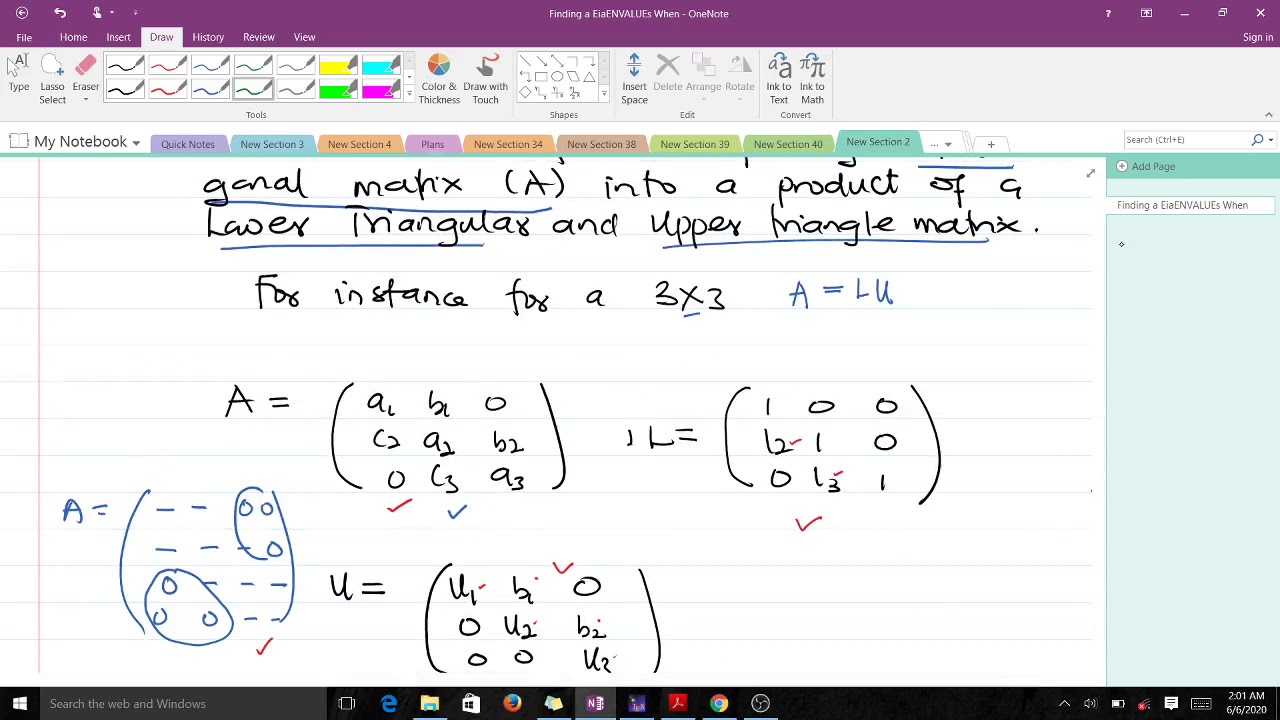 Finding a EiaENVALUEs When - OneNote
File Home Insert Draw History Review View Sign in
Type Lasso Select Eraser Color & Thickness Draw with Touch Insert Space Delete Arrange Rotate Ink to Text Ink to Math
Tools Shapes Edit Convert
My Notebook Quick Notes New Section 3 New Section 4 Plans New Section 34 New Section 38 New Section 39 New Section 40 New Section 2 ... + Search (Ctrl+E)
Add Page
Finding a EiaENVALUEs When
gonal matrix (A) into a product of a
Lower Triangular and Upper triangle matrix.
For instance for a 3x3 A = LU
A = ( a1 b1 0
c2 a2 b2
0 c3 a3 )
, L = ( 1 0 0
l2 1 0
0 l3 1 )
A = ( - - 0 0
- - - 0
0 - - -
0 0 - - )
U = ( u1 b1 0
0 u2 b2
0 0 u3 )
Search the web and Windows
2:01 AM
6/6/2020